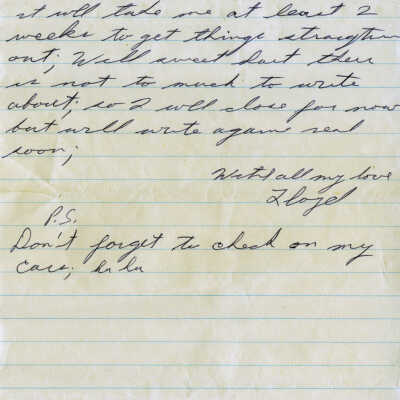 it will take me at least 2
weeks to get things straighten
out; Well sweet hart their
is not to much to write
about; so I will close for now
but will write again real
soon;
With all my love
Lloyd
P.S.
Don't forget to check on my
cars; ha ha